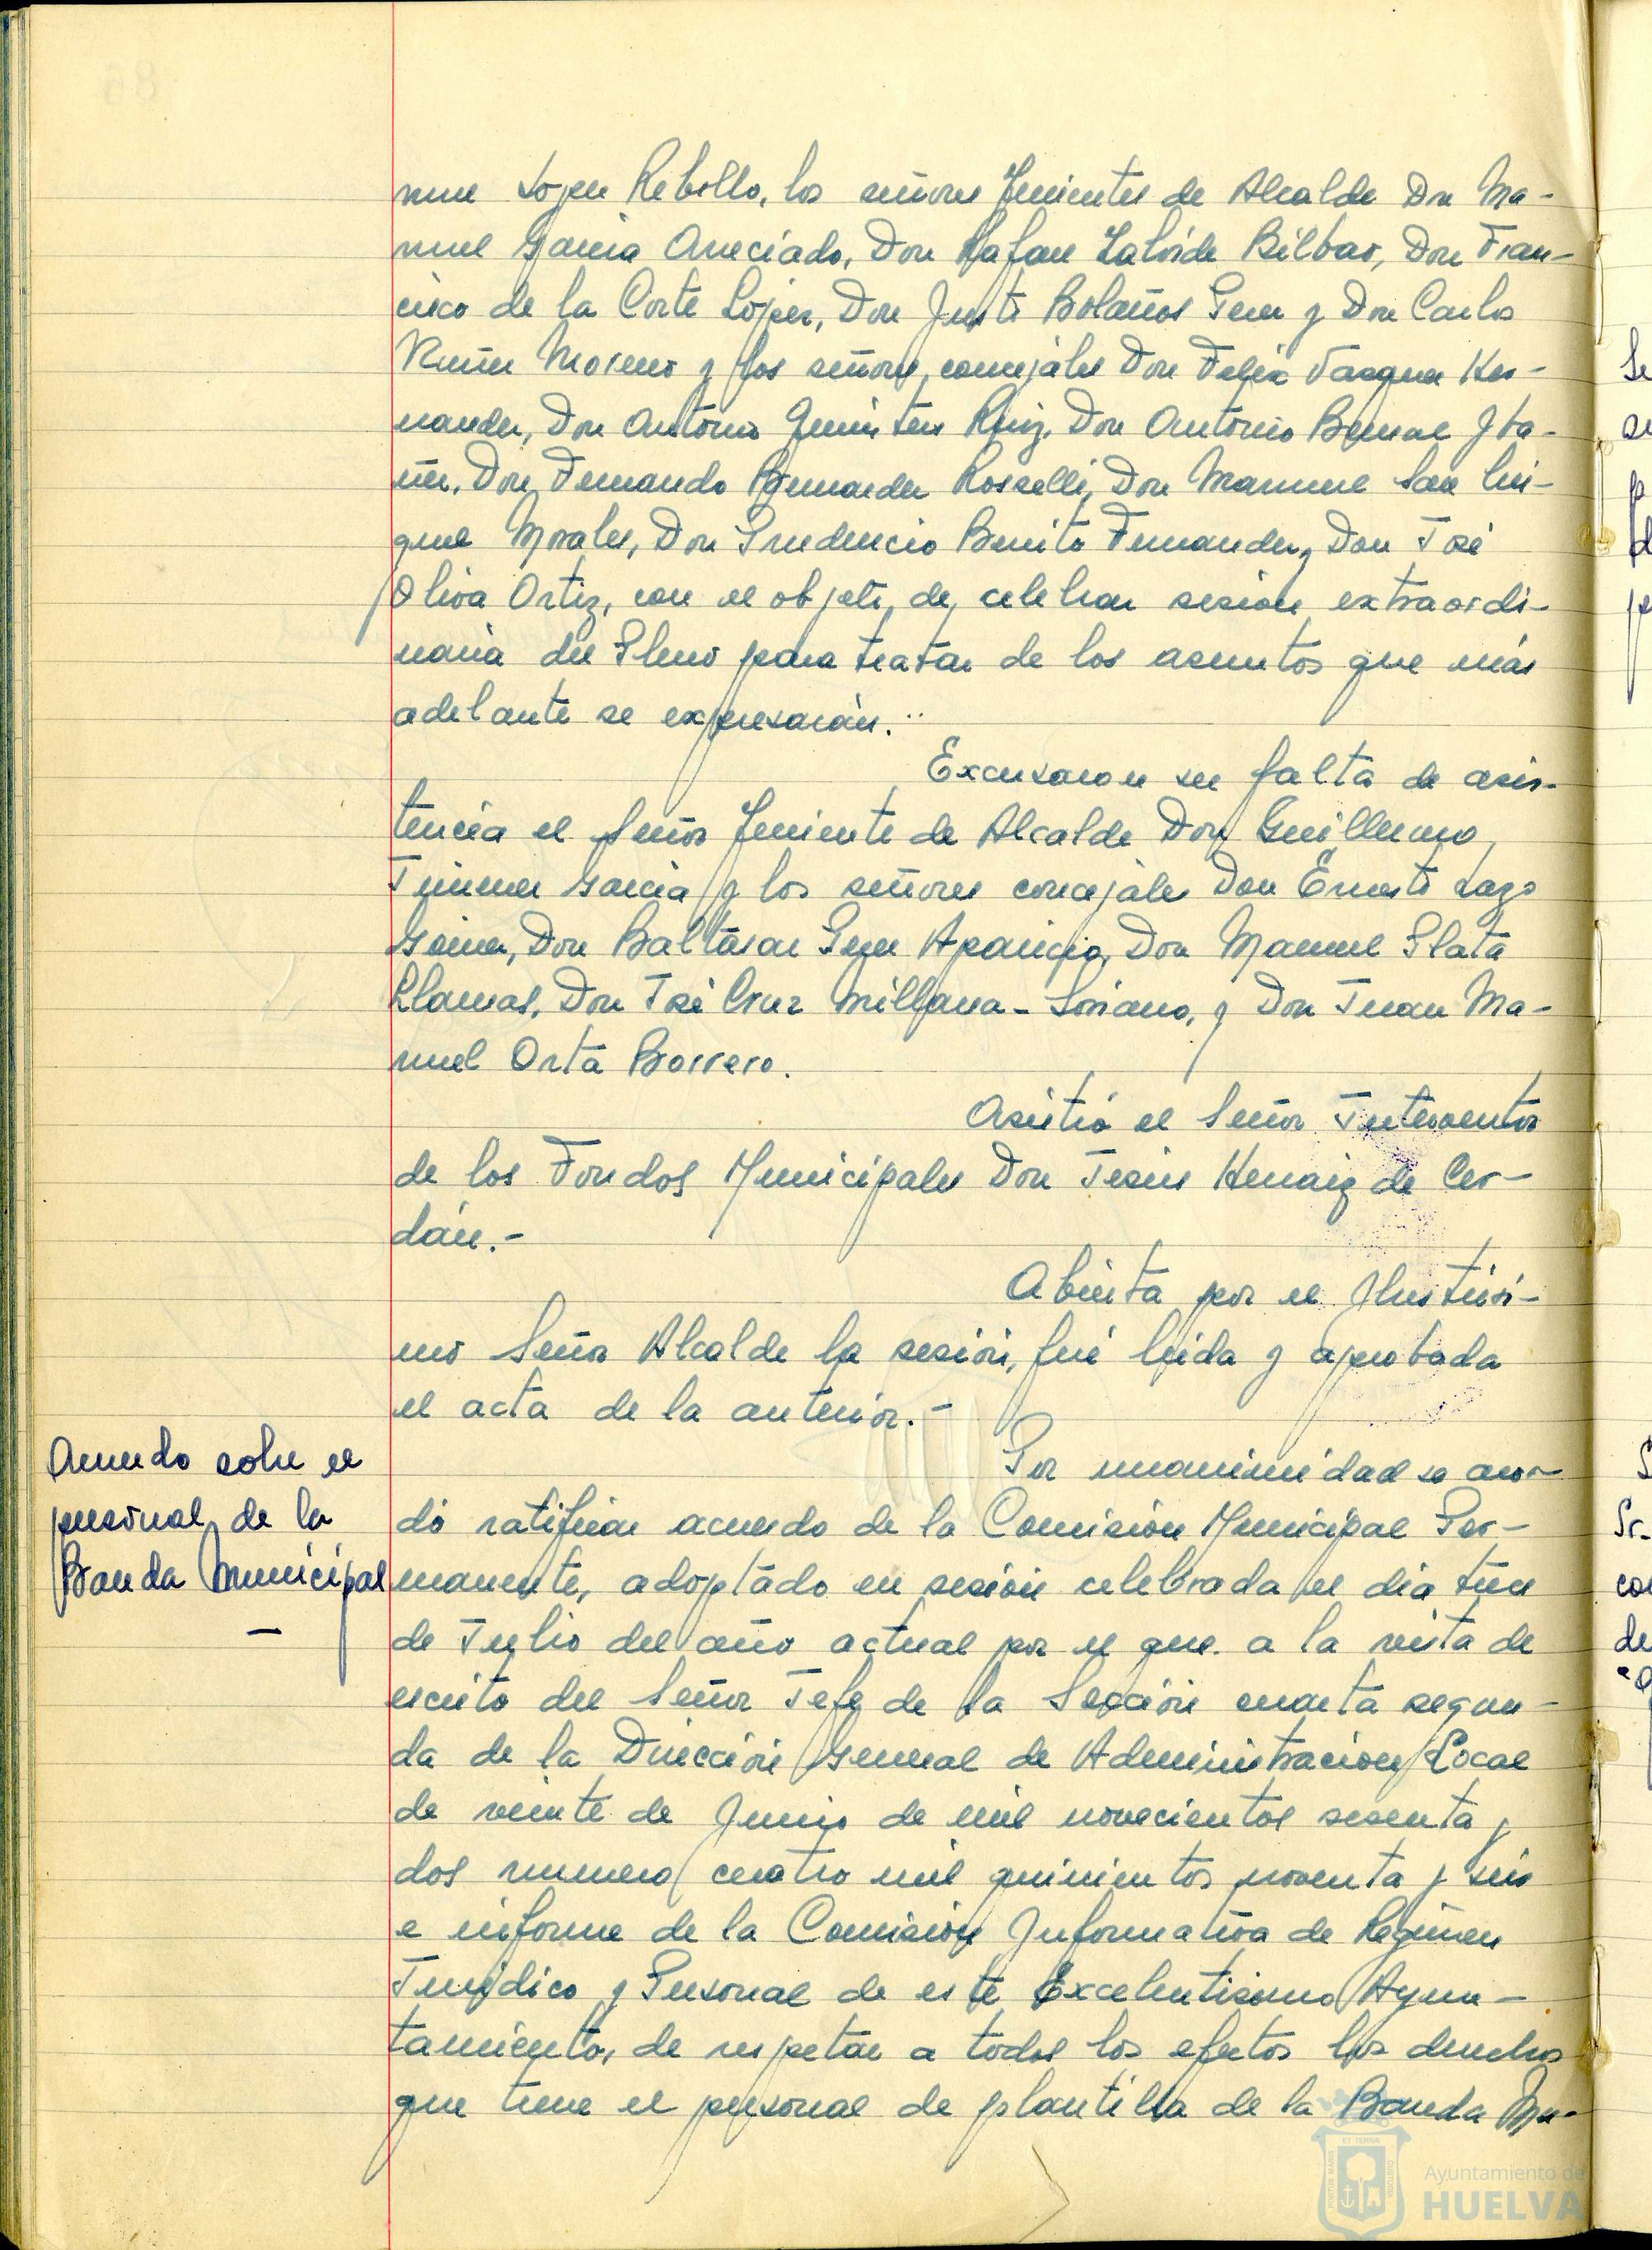 nuel López Rebollo, los señores Tenientes de Alcalde Don Ma-
nuel García Aneciado, Don Rafael Laloide Bilbao, Don Fran-
cisco de la Corte López, Don Justo Bolaños Perez y Don Carlos
Nuñez Moreno y los señores concejales Don Felix Vazquez Her-
nandez, Don Antonio Quintero Ruiz, Don Antonio Bernal Iba-
ñez, Don Fernando Bernardez Rosselli, Don Manuel San
Morales, Don Prudencio Benito Fernandez y Don José
Oliva Ortiz, con el objeto de celebrar sesión extraordi-
naria del Pleno para tratar de los asuntos que más
adelante se expresarán.
Excusaron su falta de asis-
tencia el Señor Teniente de Alcalde Don Guillermo
Jimenez García y los señores concejales Don Ernesto Lazo
Gómez, Don Baltasar Perez Aparicio, Don Manuel Plata
Llamas, Don José Cruz Millana-Soriano, y Don Juan Ma-
nuel Orta Borrero.
Asistió el Señor Interventor
de los Fondos Municipales Don Jesús Henaiz de Cer-
dán.-
Abierta por el Ilustrísi-
mo Señor Alcalde la sesión, fué leida y aprobada
el acta de la anterior.-
Acuerdo sobre el
personal de la
Banda Municipal
-
Por unanimidad se acor-
dó ratificar acuerdo de la Comisión Municipal Per-
manente, adoptado en sesión celebrada el dia tres
de Julio del año actual por el que a la vista de
escrito del Señor Jefe de la Sección cuarta segun-
da de la Dirección General de Administración Local
de veinte de Junio de mil novecientos sesenta y
dos numero cuatro mil quinientos noventa y seis
e informe de la Comisión Informativa de Regimen
Juridico y Personal de este Excelentisimo Ayun-
tamiento, de respetar a todos los efectos los derechos
que tiene el personal de plantilla de la Banda Mu-
Ayuntamiento de
HUELVA